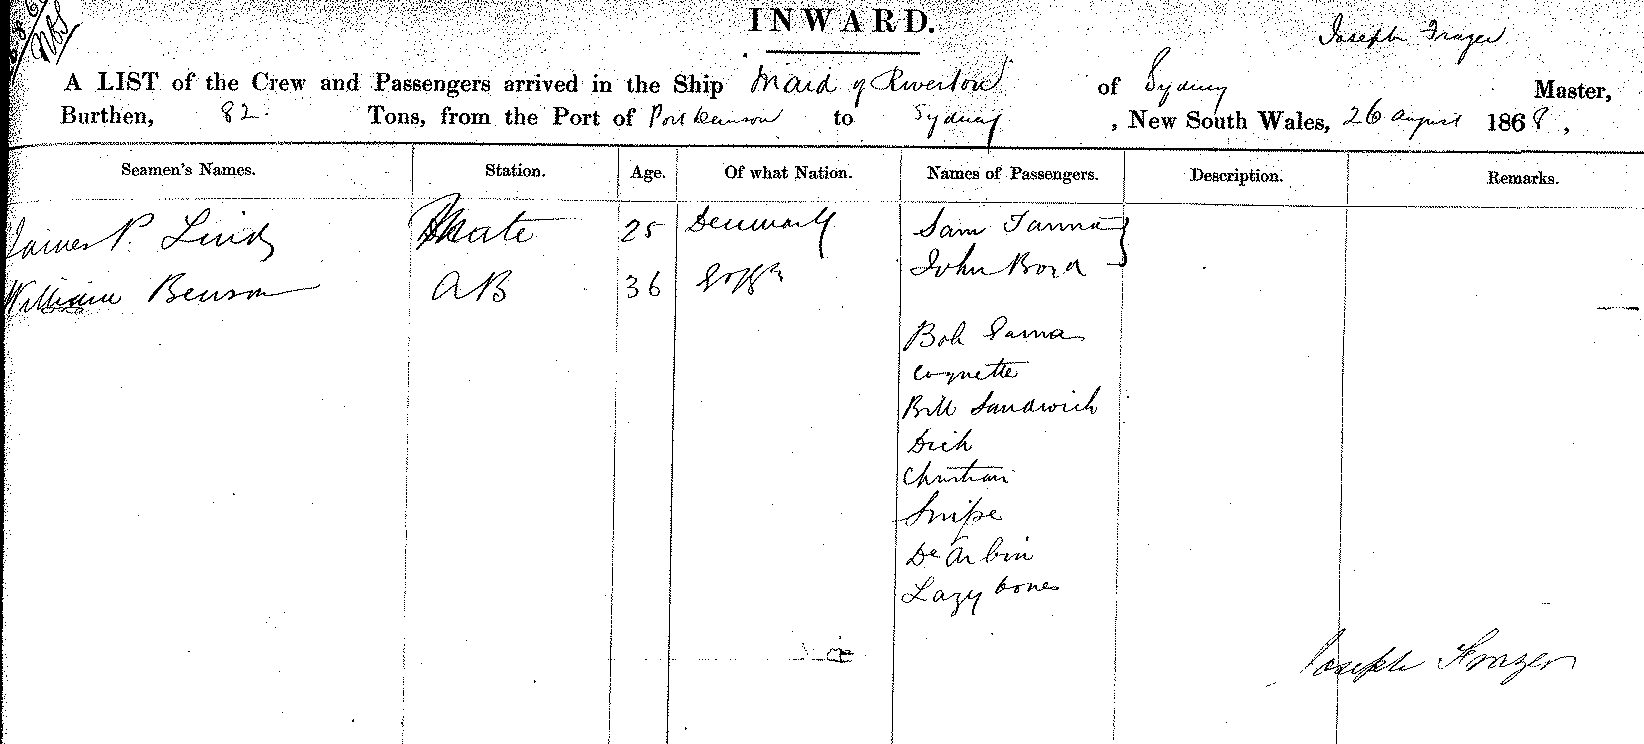 INWARD.
Joseph Frazer
A LIST of the Crew and Passengers arrived in the Ship Maid of Riverton of Sydney Master,
Burthen, 82 Tons, from the Port of Port Denison to Sydney, New South Wales, 26 August 1868,
Seamen's Names. Station. Age. Of what Nation. Names of Passengers. Description. Remarks.
James P. Lind Mate 25 Denmark Sam Tanna
John Bord
William Benson AB 36
Bob Tanna
Coquette
Bill Sandwich
Dick
Christian
Snipe
Lazy bones
Joseph Frazer